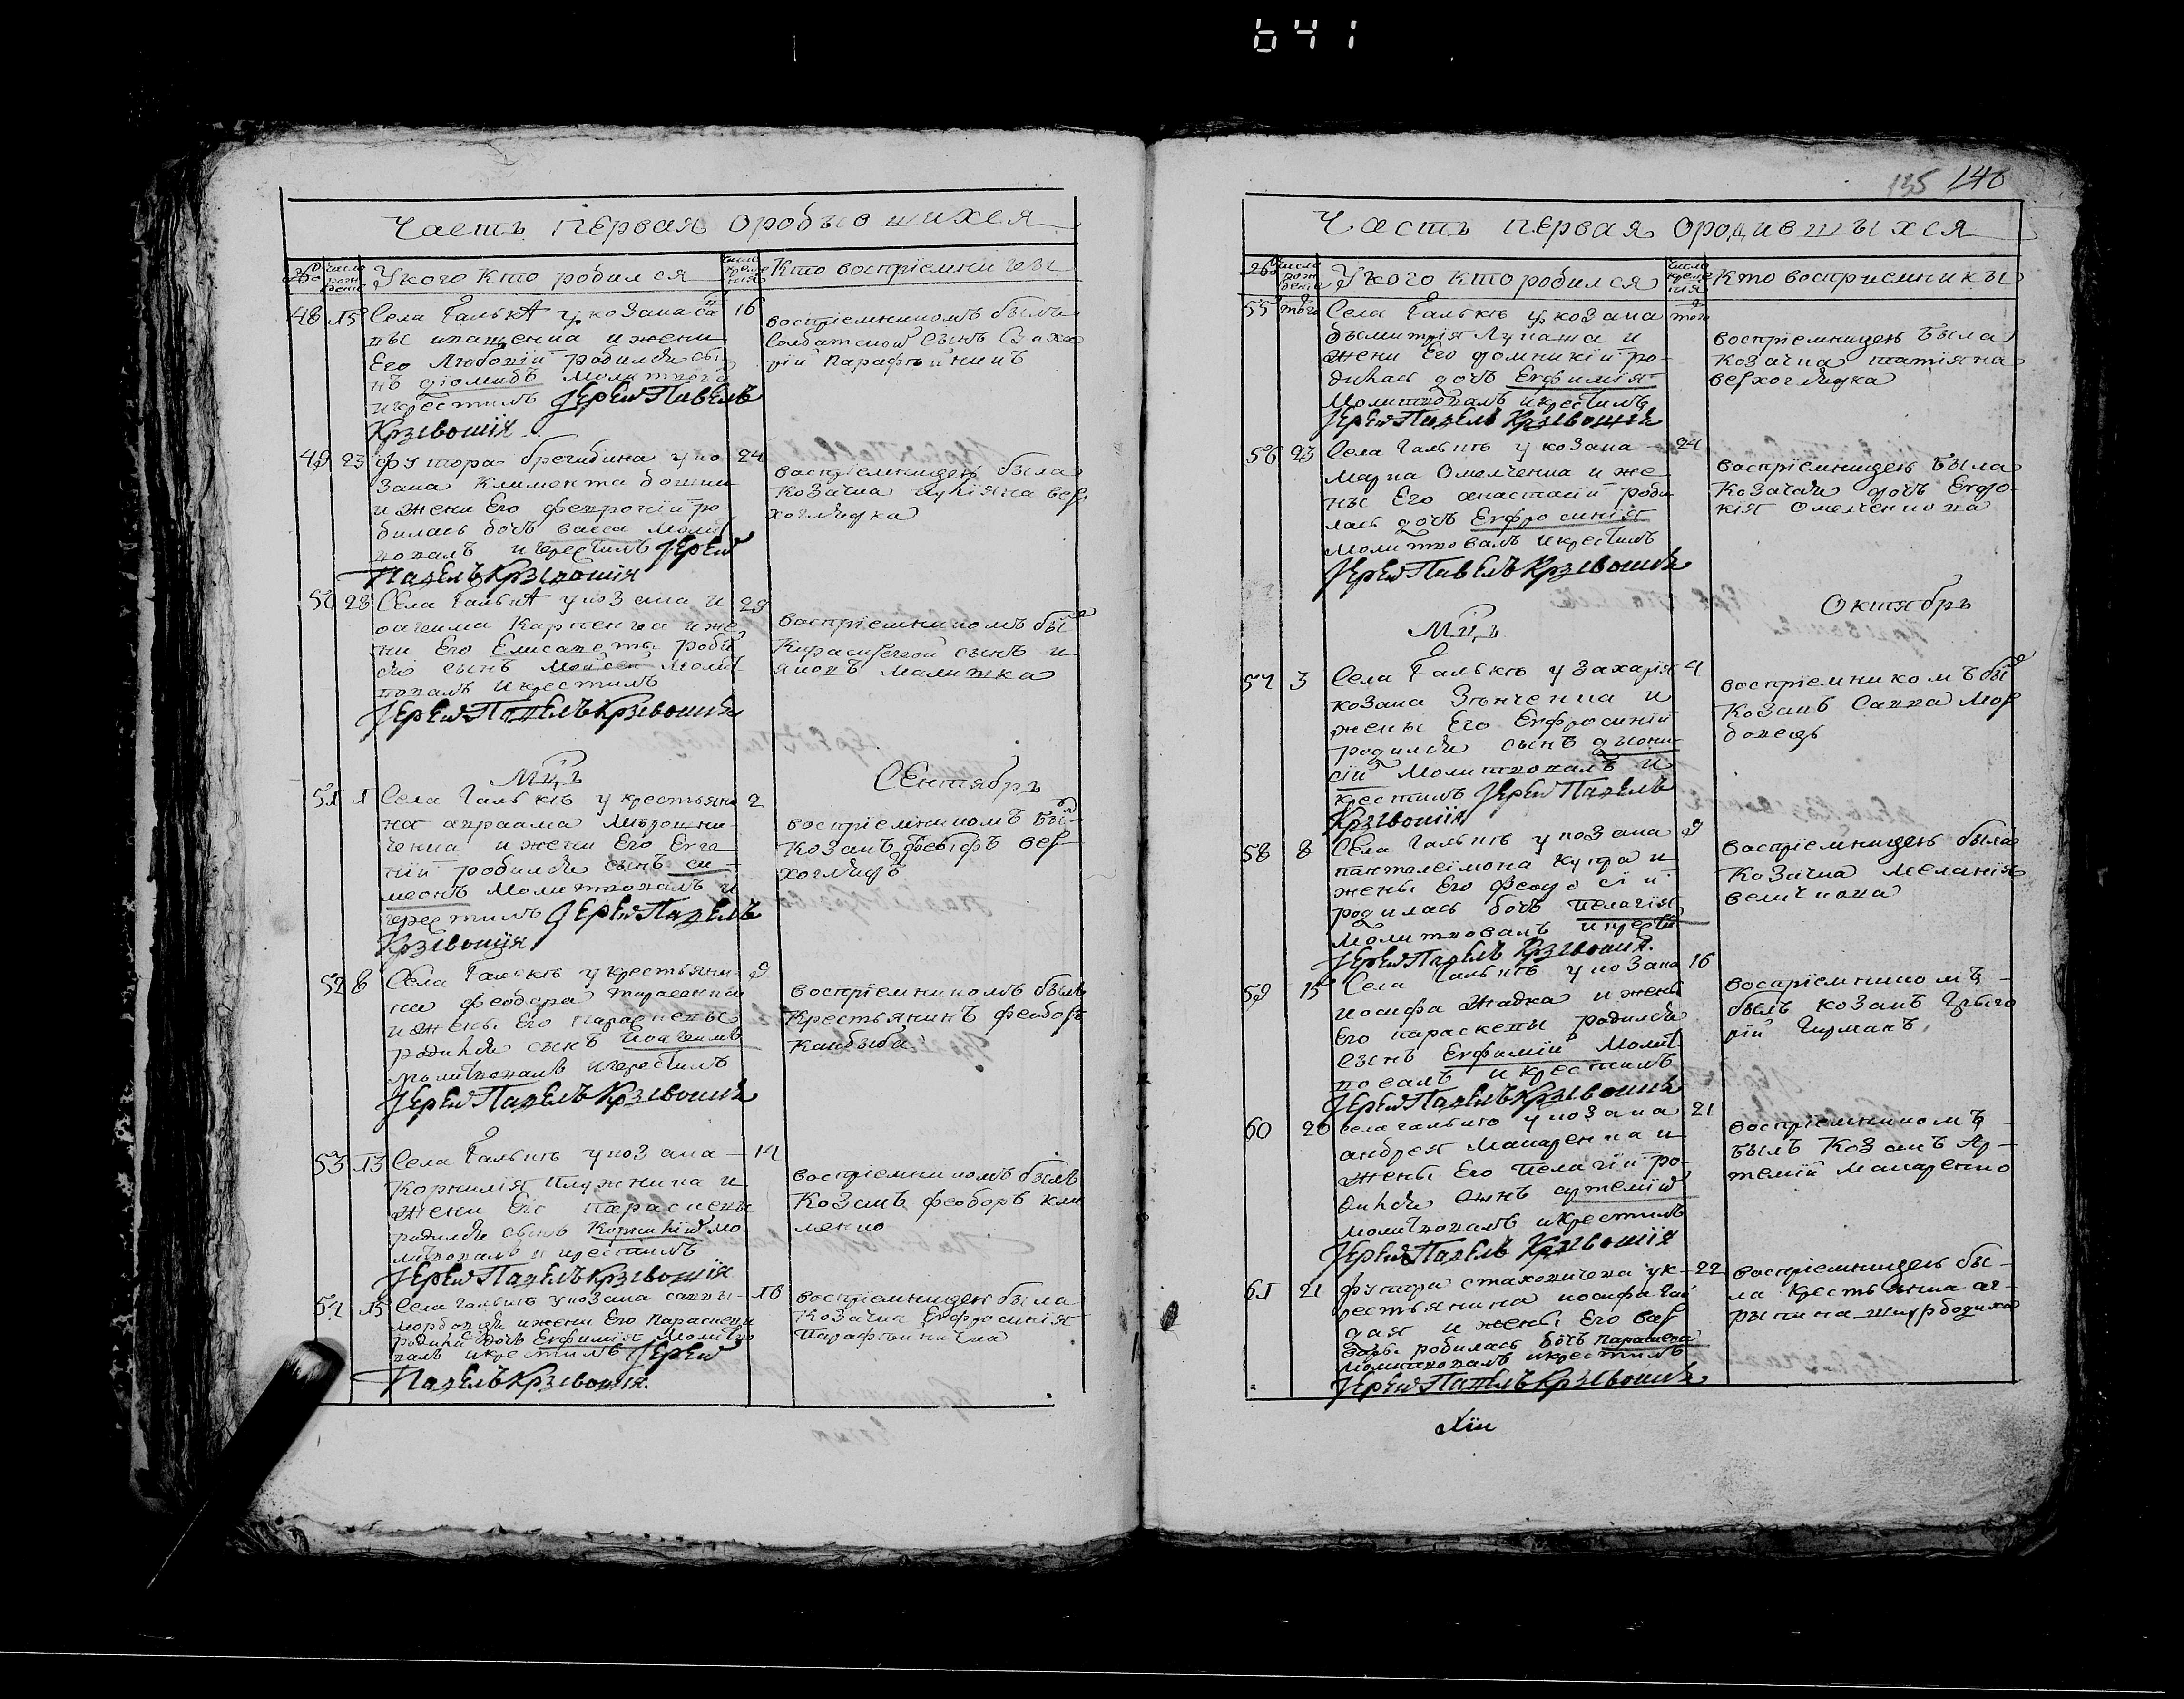 641
Часть первая ородившихся
№ число рождения Укого кто родился число крещения Кто восприемники
48 15 Села Гальки у козака 16
и жени
Его Любовій родился сы
нъ Діомидъ Молитвова
и крестилъ Іерей Павелъ
Кривошія
восприемникомъ былъ
Солдатской сынъ Заха
рій Парафѣйникъ
49 23 футора у ко 24
зака Климента
и жени Его Февроніи ро
дилась дочь васса молит
вовалъ и крестилъ Іерей
Павелъ Кривошія
восприемницею была
Козачка верхоглядка
50 28 Села Гальки у козака и 29
оакима Карпенка и же
ни Его Елисаветы роди
ся сынъ Моисей молит
вовалъ и крестилъ
Іерей Павелъ Кривошія
восприемникомъ былъ
сынъ и
яковъ Малишка
Мцъ Сентябрь
51 1 Села Гальки у крестьяни 2
на авраама Мирошни
ченка и жени Его Евге
ніи родился сынъ си
меонъ Молитвовалъ и
крестилъ Іерей Павелъ
Кривошія
восприемникомъ былъ
Козакъ вер
хоглядъ
52 8 Села Гальки у крестьяни 9
на Феодора Тарасенка
и жены Его Параскевы
родился сынъ Іоакимъ
молитвовалъ и крестилъ
Іерей Павелъ Кривошія
восприемникомъ былъ
Крестьянинъ Феодоръ
Кандыба
53 13 Села Гальки у козака 14
Корнилія Плужника и
жени Его Параскевы
родился сынъ Корнилій мо
литвовалъ и крестилъ
Іерей Павелъ Кривошія
восприемникомъ былъ
Козакъ Феодоръ Кли
менко
54 15 Села Гальки у козака саввы 16
морбовця и жени Его Параскеви
родилась дочь Евфимія Молитво
валъ и крестилъ Іерей
Павелъ Кривошія.
восприемницею была
Козачка Евфросинія
Парафѣйничка
135 140
Часть первая ородившыхся
№ число рождения Укого кто родился число крещения Кто восприемникы
55 того Села Гальки у козака того
дымитрія Лупаша и
жени Его домникіи ро
дилась дочь Евфимія
Молитвовалъ и крестилъ
Іерей Павелъ Кривошія
восприемницею была
Козачка татіяна
верхоглядка
56 23 Села Гальки у козака 24
марка Омелченка и же
ны Его анастасіи роди
лась дочь Евфросинія
молитвовалъ и крестилъ
Іерей Павелъ Кривошія
восприемницею была
Козачая дочь Евдо
кія Омелченкова
Мцъ Октябрь
57 3 Села Гальки у Захарія 4
козака Зѣнченка и
жены Его Евфросиніи
родился сынъ дыони
сій Молитвовалъ и
крестилъ Іерей Павелъ
Кривошія
восприемникомъ былъ
Козакъ Савва Мор
бовець
58 8 Села Гальки у козака 9
пантелеімона купра и
жены Его Феодосіи
родилась дочь Пелагія
молитвовалъ и крести
Іерей Павелъ Кривошія.
восприемницею была
Козачка Меланія
величкова
59 15 Села Гальки у козака 16
иосифа Жадка и жены
Его параскевы родился
сынъ Евфимій Молит
вовалъ и крестилъ
Іерей Павелъ Кривошія
восприемникомъ
былъ козакъ Грыго
рій Гирманъ
60 20 Села Гальки у козака 21
андрея Макаренка и
жены Его Пелагіи ро
дился сынъ артемій
молитвовалъ и крестилъ
Іерей Павелъ Кривошія
восприемникомъ
былъ Козакъ Ар
темій Макаренко
61 21 футора стаховичева у к 22
рестьянина иосифа Гай
дая и жены Его вар
вары родилась дочь параскева
молитвовалъ и крестилъ
Іерей Павелъ Кривошія
восприемницею бы
ла крестьянка аг
рыпина